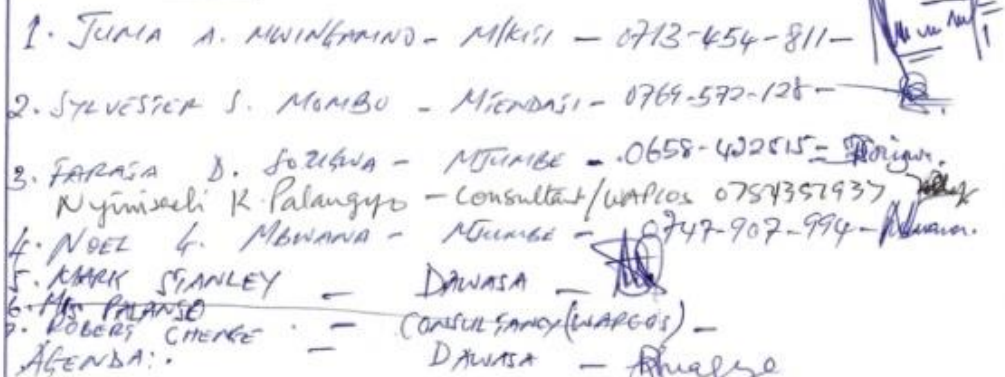 1. JUMA A. MWINGAMNO - M/KITI - 0713-454-811-
2. SYLVESTER S. MOMBO - MTENDAJI - 0769-592-128-
3. FARAJA D. - MJUMBE - 0658-422515-
K. Palangyo - Consultant/WAPCOS 0754357937
4. NOEL G. MBWANA - MJUMBE - 0747-907-994-
5. MARK STANLEY - DAWASA -
6. Mrs PALANSO - CONSULTANCY (WAPCOS) -
7. ROBERT CHENGE - DAWASA -
AGENDA:.